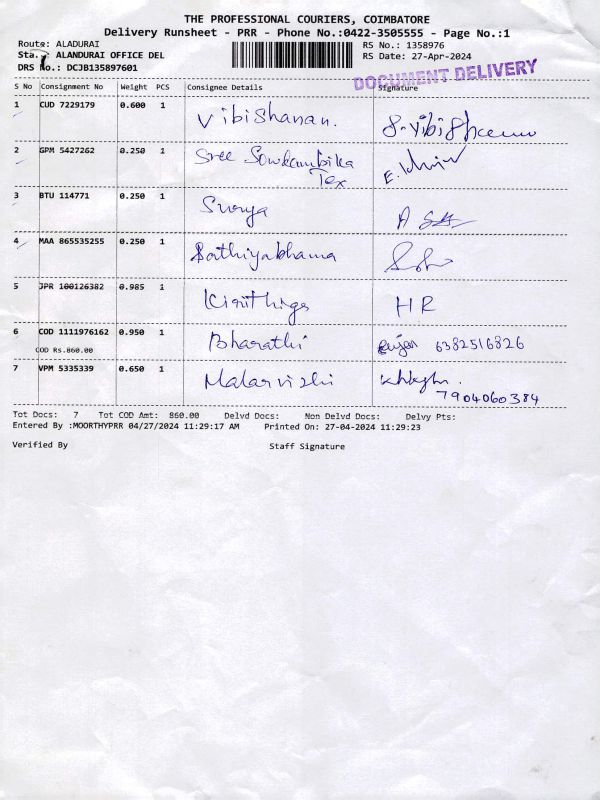 THE PROFESSIONAL COURIERS, COIMBATORE
Delivery Runsheet - PRR - Phone No.:0422-3505555 - Page No.:1
Route: ALADURAI RS No.: 1358976
Sta.: ALANDURAI OFFICE DEL RS Date: 27-Apr-2024
DRS No.: DCJB135897601
DOCUMENT DELIVERY
S No Consignment No Weight PCS Consignee Details Signature
1 CUD 7229179 0.600 1 Vibishanan. S.Vibishanan
2 GPM 5427262 0.250 1 Sree Sowdambika
Tex
3 BTU 114771 0.250 1 Surya
4 MAA 865535255 0.250 1 Sathiyabhama
5 JPR 100126382 0.985 1 Kirithiga HR
6 COD 1111976162 0.950 1 Bharathi 6382516826
COD RS.860.00
7 VPM 5335339 0.650 1 Malarvizhi
7904060384
Tot Docs: 7 Tot COD Amt: 860.00 Delvd Docs: Non Delvd Docs: Delvy Pts:
Entered By :MOORTHYPRR 04/27/2024 11:29:17 AM Printed On: 27-04-2024 11:29:23
Verified By Staff Signature